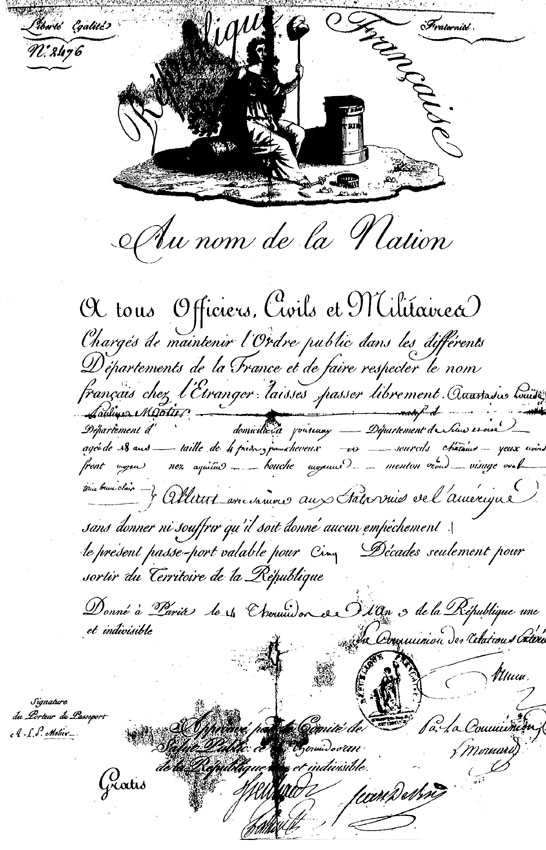 Liberté Egalité
Fraternité.
N.º 2476
République Française
Au nom de la Nation
A tous Officiers, Civils et Militaires
Chargés de maintenir l'Ordre public dans les différents
Départements de la France et de faire respecter le nom
français chez l'Etranger: laissez passer librement. Anastasie Louise
Pauline Motier
Département d' domiciliée à Département de
agée de 18 ans — taille de 4 cheveux — sourcils châtains — yeux noirs
front moyen nez aquilin — bouche moyenne — menton rond — visage oval
Allant aux Etats unis de l'amérique
sans donner ni souffrir qu'il soit donné aucun empêchement.
le présent passe-port valable pour Cinq Décades seulement pour
sortir du Territoire de la République
Donné à Paris le 4 Thermidor de l'An 3 de la République une
et indivisible
La Commission des relations
REPUBLIQUE FRANÇAISE
Signature
du Porteur du Passeport
Approuvé par le Comité de
Par La Commission
Salut Public ce Thermidor an
de la République une et indivisible.
Gratis
Jean Debry